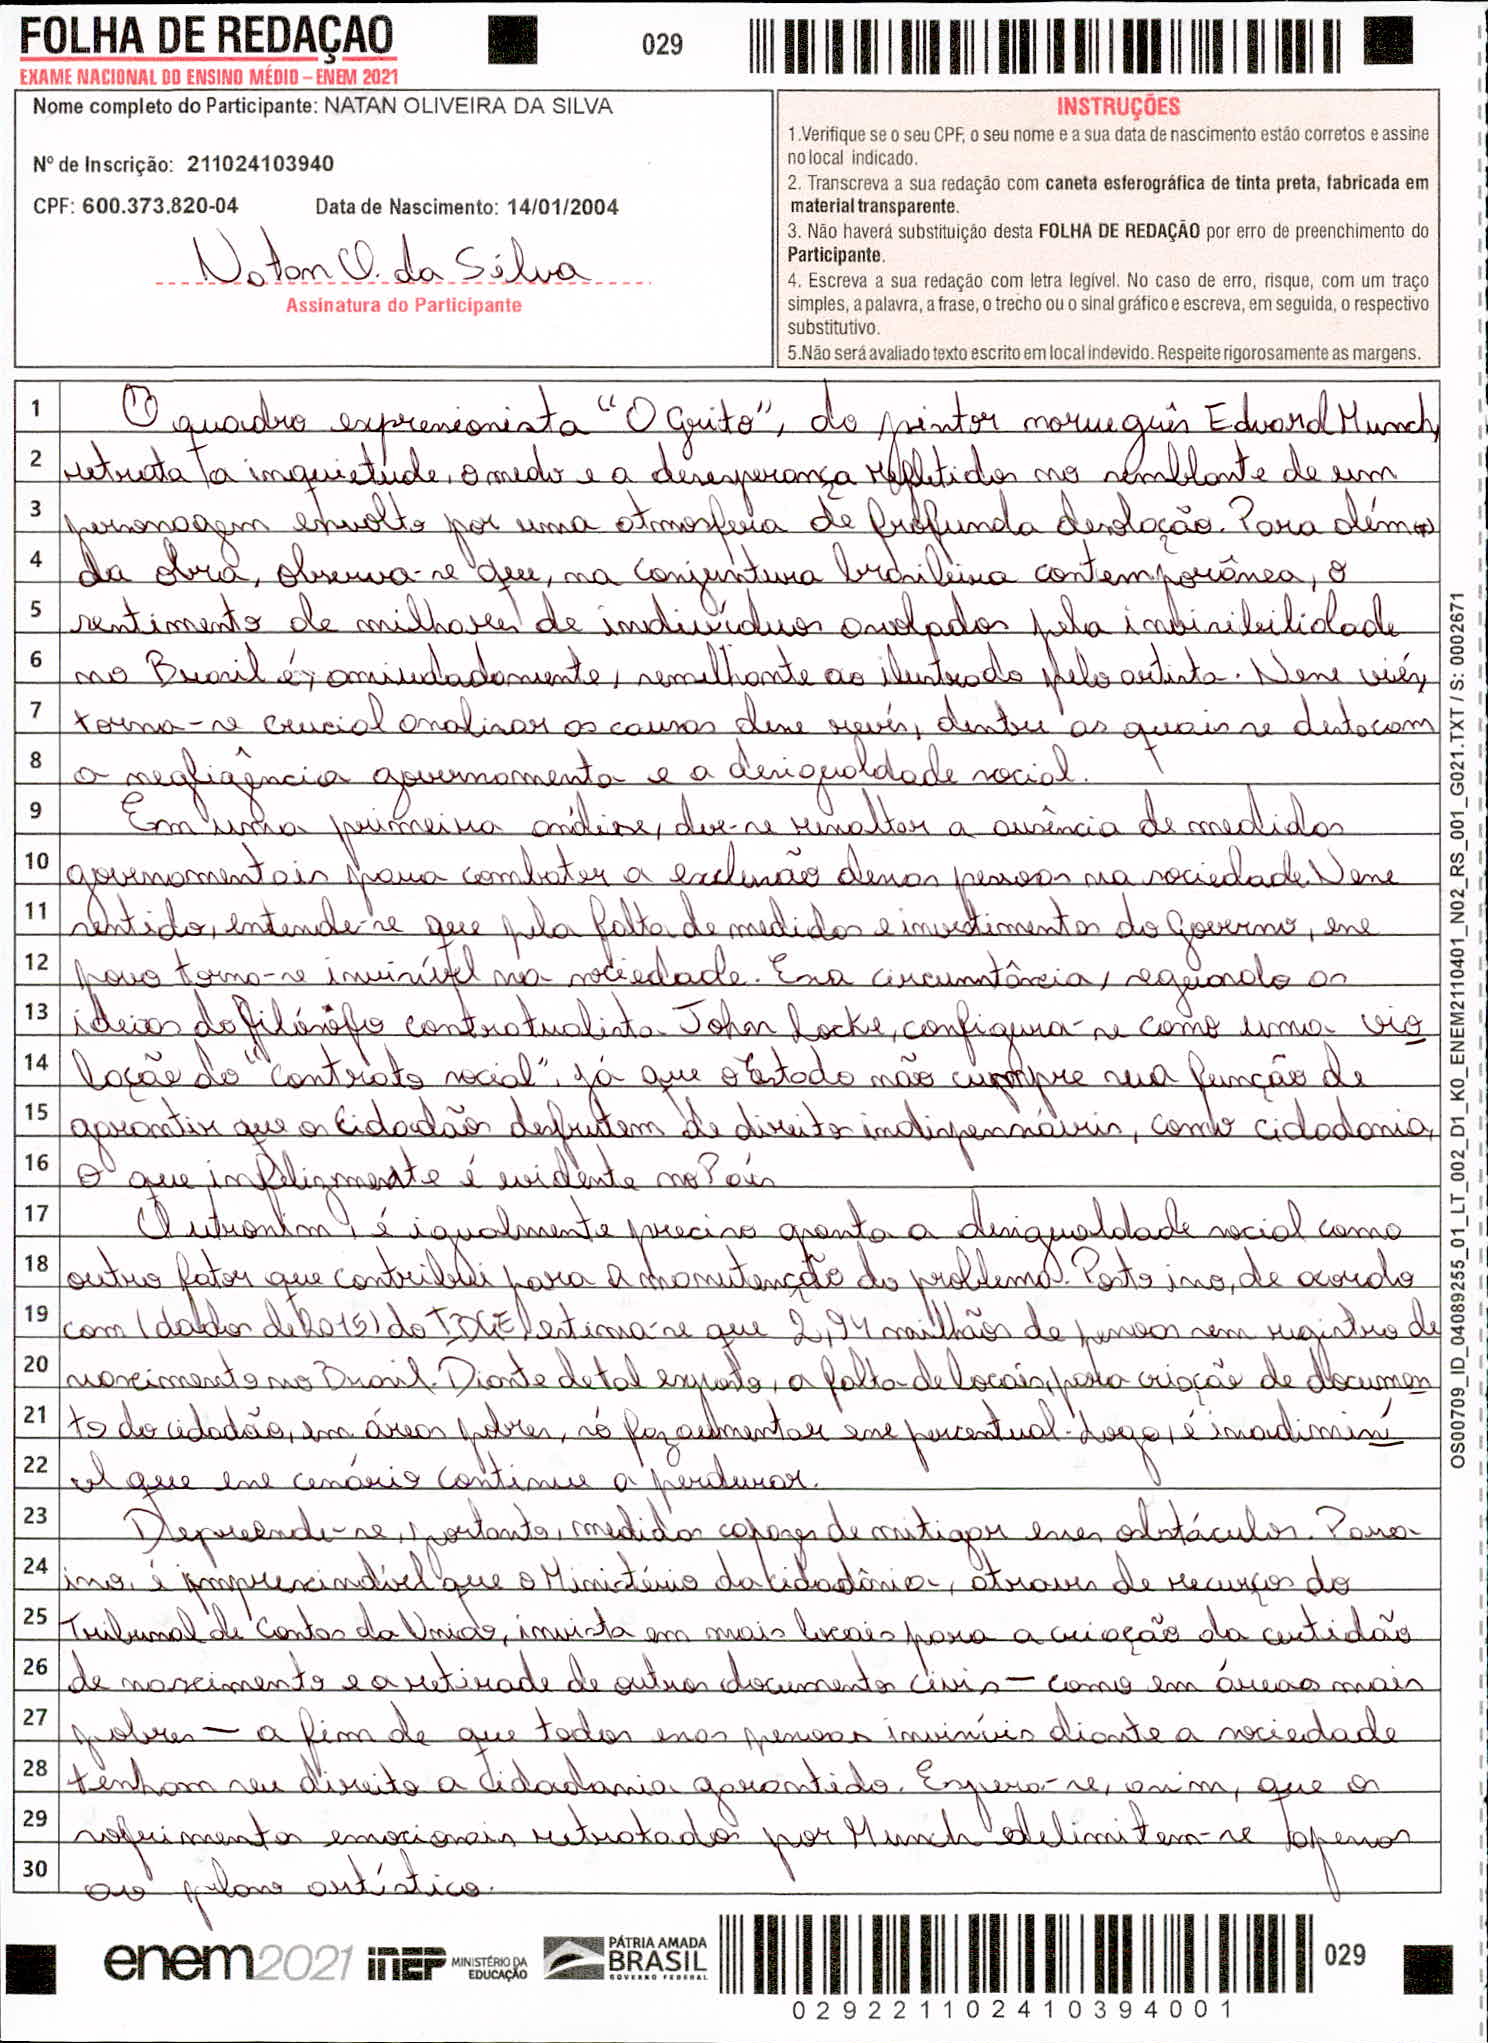 FOLHA DE REDAÇÃO
029
EXAME NACIONAL DO ENSINO MÉDIO – ENEM 2021
Nome completo do Participante: NATAN OLIVEIRA DA SILVA
Nº de Inscrição: 211024103940
CPF: 600.373.820-04 Data de Nascimento: 14/01/2004
Natan O. da Silva
Assinatura do Participante
INSTRUÇÕES
1.Verifique se o seu CPF, o seu nome e a sua data de nascimento estão corretos e assine
no local indicado.
2. Transcreva a sua redação com caneta esferográfica de tinta preta, fabricada em
material transparente.
3. Não haverá substituição desta FOLHA DE REDAÇÃO por erro de preenchimento do
Participante.
4. Escreva a sua redação com letra legível. No caso de erro, risque, com um traço
simples, a palavra, a frase, o trecho ou o sinal gráfico e escreva, em seguida, o respectivo
substitutivo.
5.Não será avaliado texto escrito em local indevido. Respeite rigorosamente as margens.
1 O quadro expressionista "O Grito", do pintor norueguês Edvard Munch,
2 retrata a inquietude, o medo e a desesperança refletidos no semblante de um
3 personagem envolto por uma atmosfera de profunda desolação. Para além
4 da obra, observa-se que, na conjuntura brasileira contemporânea, o
5 sentimento de milhares de indivíduos assolados pela invisibilidade
6 no Brasil é, amiudadamente, semelhante ao ilustrado pelo artista. Nesse viés,
7 torna-se crucial analisar as causas desse revés, dentre as quais se destacam
8 a negligência governamenta e a desigualdade social.
9 Em uma primeira análise, deve-se ressaltar a ausência de medidas
10 governamentais para combater a exclusão dessas pessoas na sociedade. Nesse
11 sentido, entende-se que pela falta de medidas e investimentos do Governo, esse
12 povo torna-se invisível na sociedade. Essa circunstância, segundo as
13 ideias do filósofo contratualista John Locke, configura-se como uma vio
14 lação do "contrato social", já que o Estado não cumpre sua função de
15 garantir que os cidadãos desfrutem de direitos indispensáveis, como cidadania,
16 o que infelizmente é evidente no País
17 Outrossim, é igualmente preciso aponta a desigualdade social como
18 outro fator que contribui para a manutenção do problema. Posto isso, de acordo
19 com (dados de 2015) do IBGE estima-se que 2,94 milhãos de pessoas sem registro de
20 nascimento no Brasil. Diante de tal exposto, a falta de locais, para criação de documen
21 to do cidadão, em áreas pobres, só faz aumentar esse percentual. Logo, é inadimissí
22 vel que esse cenário continue a perdurar.
23 Depreende-se, portanto, medidas capazes de mitigar esses obstáculos. Para
24 isso, é imprescindível que o Ministério da cidadânia, atraves de recursos do
25 Tribunal de Contas da União, invista em mais locais para a criação da certidão
26 de nascimento e a retirade de outros documentos civis — como em áreas mais
27 pobres — a fim de que todas essas pessoas invisíveis diante a sociedade
28 tenham seu direito a cidadania garantido. Espera-se, assim, que os
29 sofrimentos emocionais retratados por Munch delimitem-se apenas
30 ao plano artístico.
OS00709_ID_04089255_01_LT_002_D1_K0_ENEM2110401_N02_RS_001_G021.TXT / S: 0002671
enem2021 inep MINISTÉRIO DA EDUCAÇÃO PÁTRIA AMADA BRASIL GOVERNO FEDERAL
029
029221102410394001